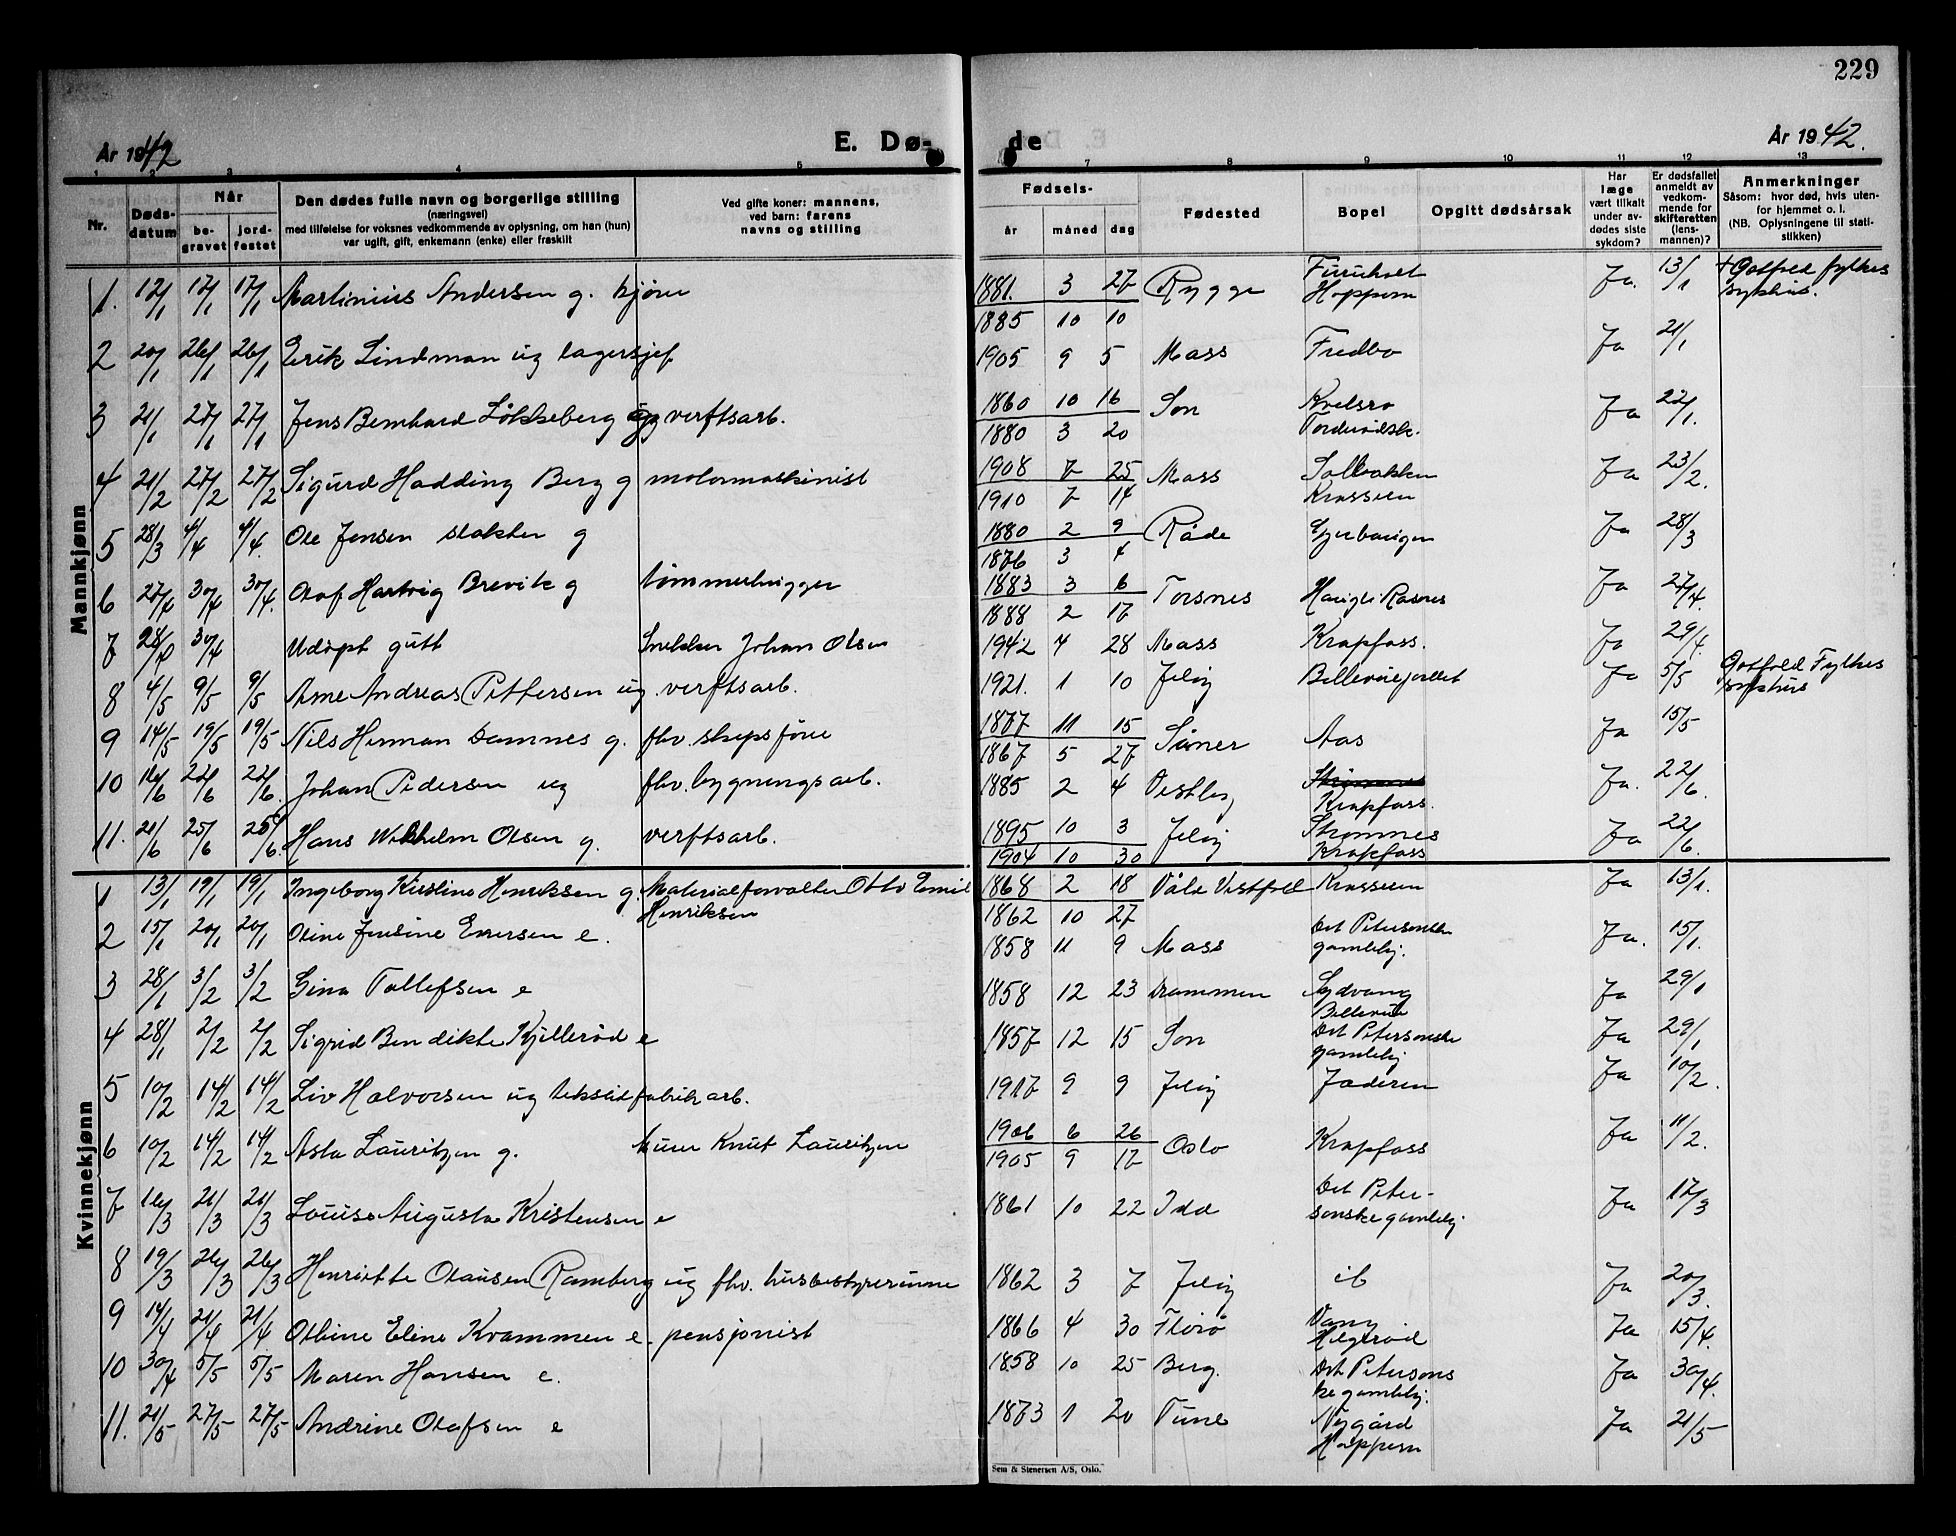 229
År 1942
E. Dø-
de
År 1942.
1 2 3 4 5 7 8 9 10 11 12 13
Nr.
Døds-
datum
Når
be-
gravet
jord-
festet
Den dødes fulle navn og borgerlige stilling
(næringsvei)
med tilføielse for voksnes vedkommende av oplysning, om han (hun)
var ugift, gift, enkemann (enke) eller fraskilt
Ved gifte koner: mannens,
ved barn: farens
navns og stilling
Fødsels-
år måned dag
Fødested
Bopel
Opgitt dødsårsak
Har
læge
vært tilkalt
under av-
dødes siste
sykdom?
Er dødsfallet
anmeldt av
vedkom-
mende for
skifteretten
(lens-
mannen)?
Anmerkninger
Såsom: hvor død, hvis uten-
for hjemmet o. l.
(NB. Oplysningene til stati-
stikken)
Mankjønn
1. 12/1 17/1 17/1 Martinius Andersen g. kjører 1881. 3 27 Rygge Furuholt Hoppern Ja. 13/1 + Østfold fylkes sykehus.
1885 10 10
2 20/1 26/1 26/1 Erik Lindman ug lagersjef 1905 9 5 Moss Fredbo Ja 21/1
3 21/1 27/1 27/1 Jens Bernhard Løkkeberg g verftsarb. 1860 10 16 Son Kvelsro Ja 22/1.
1880 3 20 Torderødsk.
4 21/2 27/2 27/2 Sigurd Hadding Berg g motormaskinist 1908 7 25 Moss Solbakken Ja 23/2.
1910 7 14 Krosseren
5 28/3 4/4 4/4. Ole Jensen slakter g 1880 2 9 Råde Ja 28/3
1876 3 4
6 27/4 30/4 30/4. Olaf Hartvig Brevik g tømmerhugger 1883 3 6 Torsnes Ja 27/4.
1888 2 17
7 28/4 30/4 Udøpt gutt Snekker Johan Olsen 1942 4 28 Moss Krapfoss. Ja 29/4.
8 4/5 9/5 9/5 Arne Andreas Pettersen ug. verftsarb. 1921. 1 10 Jeløy Bellevuejordet Ja 5/5 Østfold Fylkes sykehus
9 14/5 19/5 19/5 Nils Herman Damnes g. fhv. skipsfører 1877 11 15 Såner Aas Ja 15/5
1867 5 27
10 16/6 22/6 22/6. Johan Pedersen ug fhv. bygningsarb. 1885 2 4 Vestby Krapfoss. Ja. 22/6.
11. 21/6 25/6 25/6. Hans Wilhelm Olsen g. verftsarb. 1895 10 3 Jeløy Strømnes Ja 22/6.
1904 10 30 Krapfoss
Kvinnekjønn
1 13/1 19/1 19/1 Ingeborg Kirstine Henriksen g. Materialforvalter Otto Emil 1868 2 18 Våle Vestfold Krosseren Ja 13/1.
Henriksen 1862 10 27
2 15/1 20/1 20/1 Oline Jensine Enersen e. 1858 11 9 Moss Det Petersonske gamlehj. Ja. 15/1.
3 28/1 3/2 3/2 Gina Tollefsen e 1858 12 23 Drammen Sydvang Bellevue Ja 29/1
4 28/1 2/2 2/2 Sigrid Bendikte Kjellerød e 1857 12 15 Son Det Petersonske gamlehj. Ja 29/1
5 10/2 14/2 14/2 Liv Halvorsen ug tekstilfabrikarb. 1917 9 9 Jeløy Jæderen Ja 10/2.
6 10/2 14/2 14/2 Asta Lauritzen g. Murer Knut Lauritzen 1906 6 26 Oslo Krapfoss Ja 11/2.
1905 9 17
7 16/3 21/3 21/3 Louise Augusta Kristensen e 1861 10 22 Idd Det Peter-
sonske gamlehj. Ja 17/3
8 19/3 26/3 26/3 Henriette Olausen Ramberg ug fhv. husbestyrerinne 1862 3 7 Jeløy ib Ja 20/3.
9 14/4 21/4 21/4 Othine Eline Krammen e. pensjonist 1866 4 30 Florø Vang Helgerød Ja 15/4.
10 30/4 5/5 5/5 Maren Hansen e. 1858 10 25 Berg. Det Petersons
ke gamlehj. Ja 30/4.
11. 21/5 27/5 27/5 Andrine Olafsen e 1873 1 20 Tune Nygård Hoppern Ja 21/5
Sem & Stenersen A/S, Oslo.